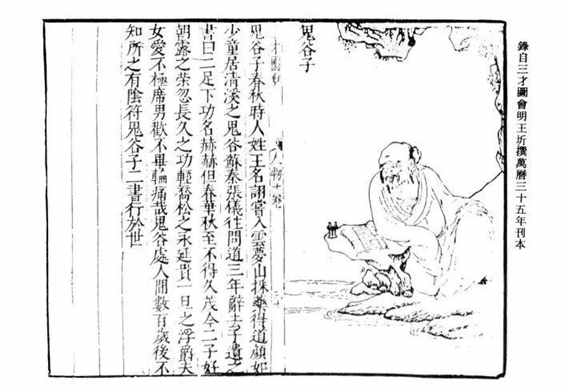 錄自三才圖會明王圻撰萬曆三十五年刊本
鬼谷子
人物十卷
鬼谷子春秋時人姓王名詡嘗入雲夢山採藥得道顏如
少童居清溪之鬼谷蘇秦張儀往問道三年辭去子遺之
書曰二足下功名赫赫但春華秋至不得久茂今二子好
朝露之榮忽長久之功輕喬松之永延貴一旦之浮爵夫
女愛不極席男歡不畢輪痛哉鬼谷處人間數百歲後不
知所之有陰符鬼谷子二書行於世